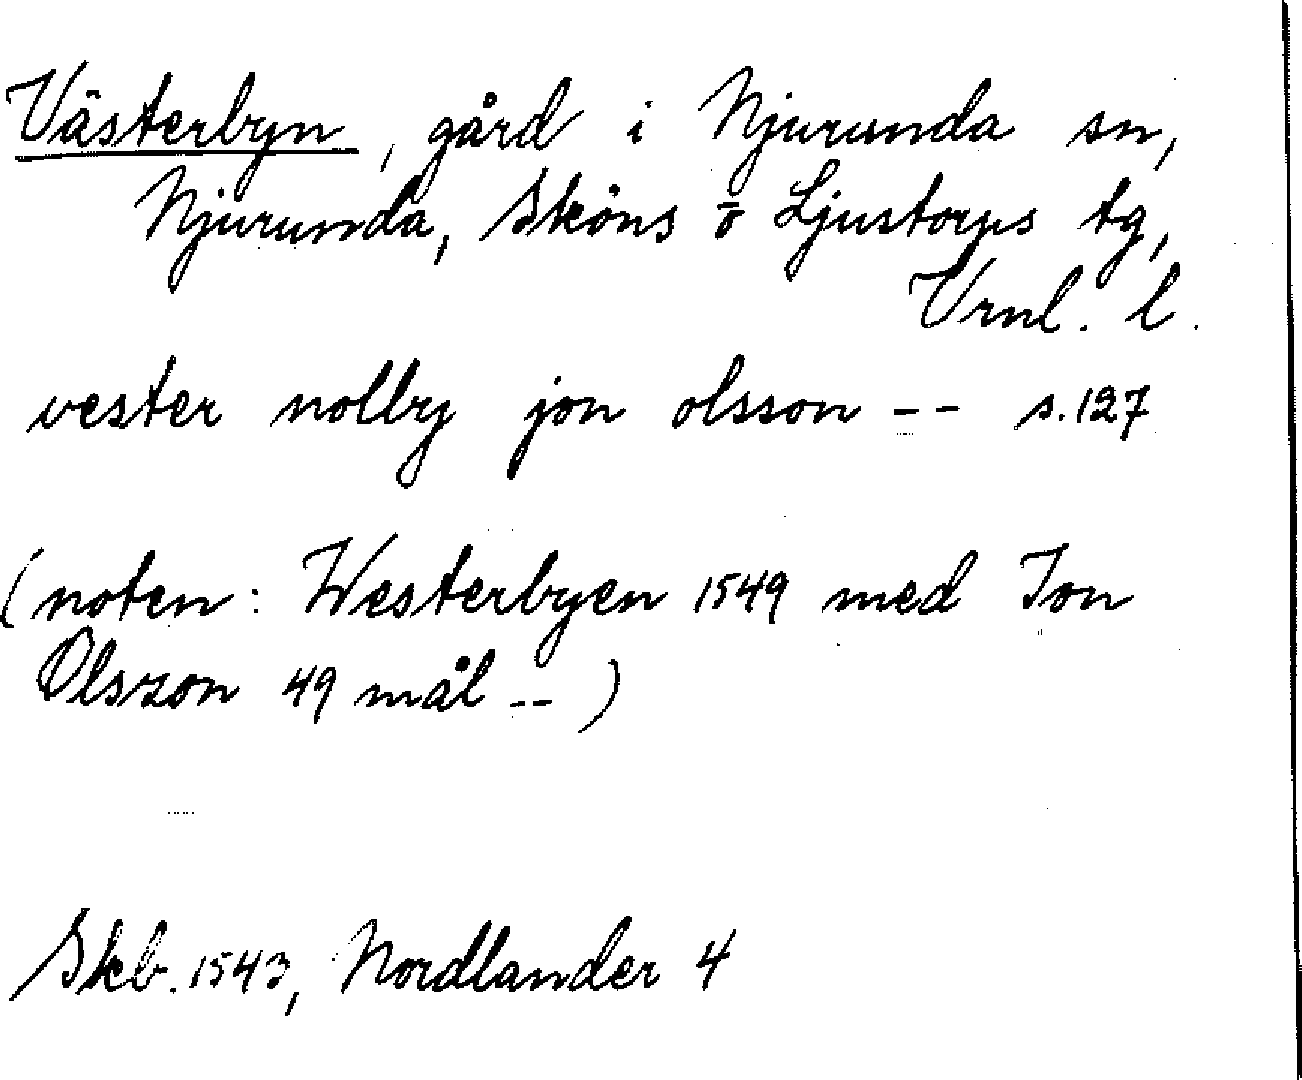 Västerbyn, gård i Njurunda sn,
Njurunda, Sköns o Ljustorps tg,
Vrnl. l.
vester nolby jon olsson -- s.127
(noten: Westerbyen 1549 med Jon
Olszon 49 mål --)
Skb. 1543, Nordlander 4